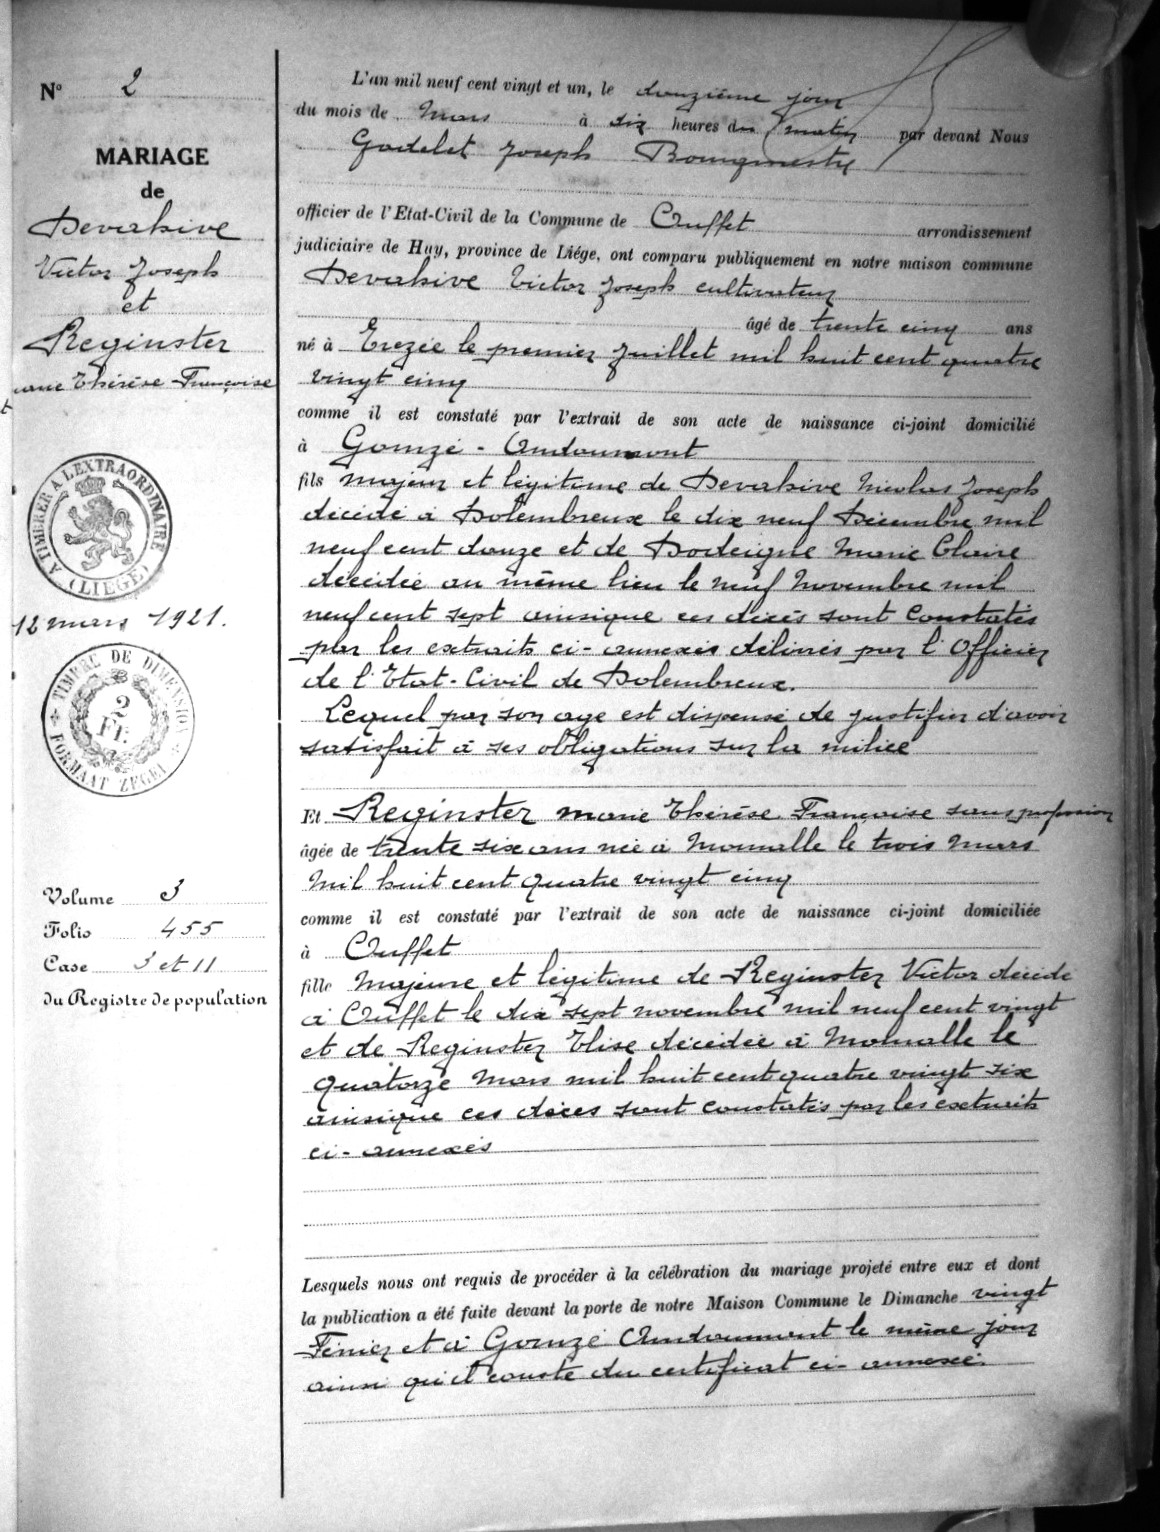 N° 2
MARIAGE
de
Devahive
Victor Joseph
et
Reginster
Marie Thérèse Françoise
A TIMBRER A L'EXTRAORDINAIRE
(LIEGE)
12 mars 1921.
TIMBRE DE DIMENSION
2
Fr.
FORMAAT ZEGEL
Volume 3
Folio 455
Case 3 et 11
du Registre de population
L'an mil neuf cent vingt et un, le douzième jour
du mois de Mars à dix heures du matin par devant Nous
Godelet Joseph Bourgmestre
officier de l'Etat-Civil de la Commune de Ouffet arrondissement
judiciaire de Huy, province de Liége, ont comparu publiquement en notre maison commune
Devahive Victor Joseph cultivateur
âgé de trente cinq ans
né à Erezée le premier Juillet mil huit cent quatre
vingt cinq
comme il est constaté par l'extrait de son acte de naissance ci-joint domicilié
à Gomzé - Andoumont
fils majeur et légitime de Devahive Nicolas Joseph
décédé à Dolembreux le dix neuf Décembre mil
neuf cent douze et de Dodeigne Marie Claire
décédée au même lieu le neuf Novembre mil
neuf cent sept ainsique ces décès sont constatés
par les extraits ci-annexés délivrés par l'Officier
de l'Etat-Civil de Dolembreux.
Lequel par son age est dispensé de justifier d'avoir
satisfait à ses obligations sur la milice
Et Reginster Marie Thérèse Françoise sans profession
âgée de trente six ans née à Momalle le trois Mars
Mil huit cent quatre vingt cinq
comme il est constaté par l'extrait de son acte de naissance ci-joint domiciliée
à Ouffet
fille Majeure et légitime de Reginster Victor décédé
à Ouffet le dix sept novembre mil neuf cent vingt
et de Reginster Elise décédée à Momalle le
quatorze Mars mil huit cent quatre vingt six
ainsique ces décès sont constatés par les extraits
ci-annexés
Lesquels nous ont requis de procéder à la célébration du mariage projeté entre eux et dont
la publication a été faite devant la porte de notre Maison Commune le Dimanche vingt
Février et à Gomzé Andoumont le même jour
ainsi qu'il conste du certificat ci-annexé.